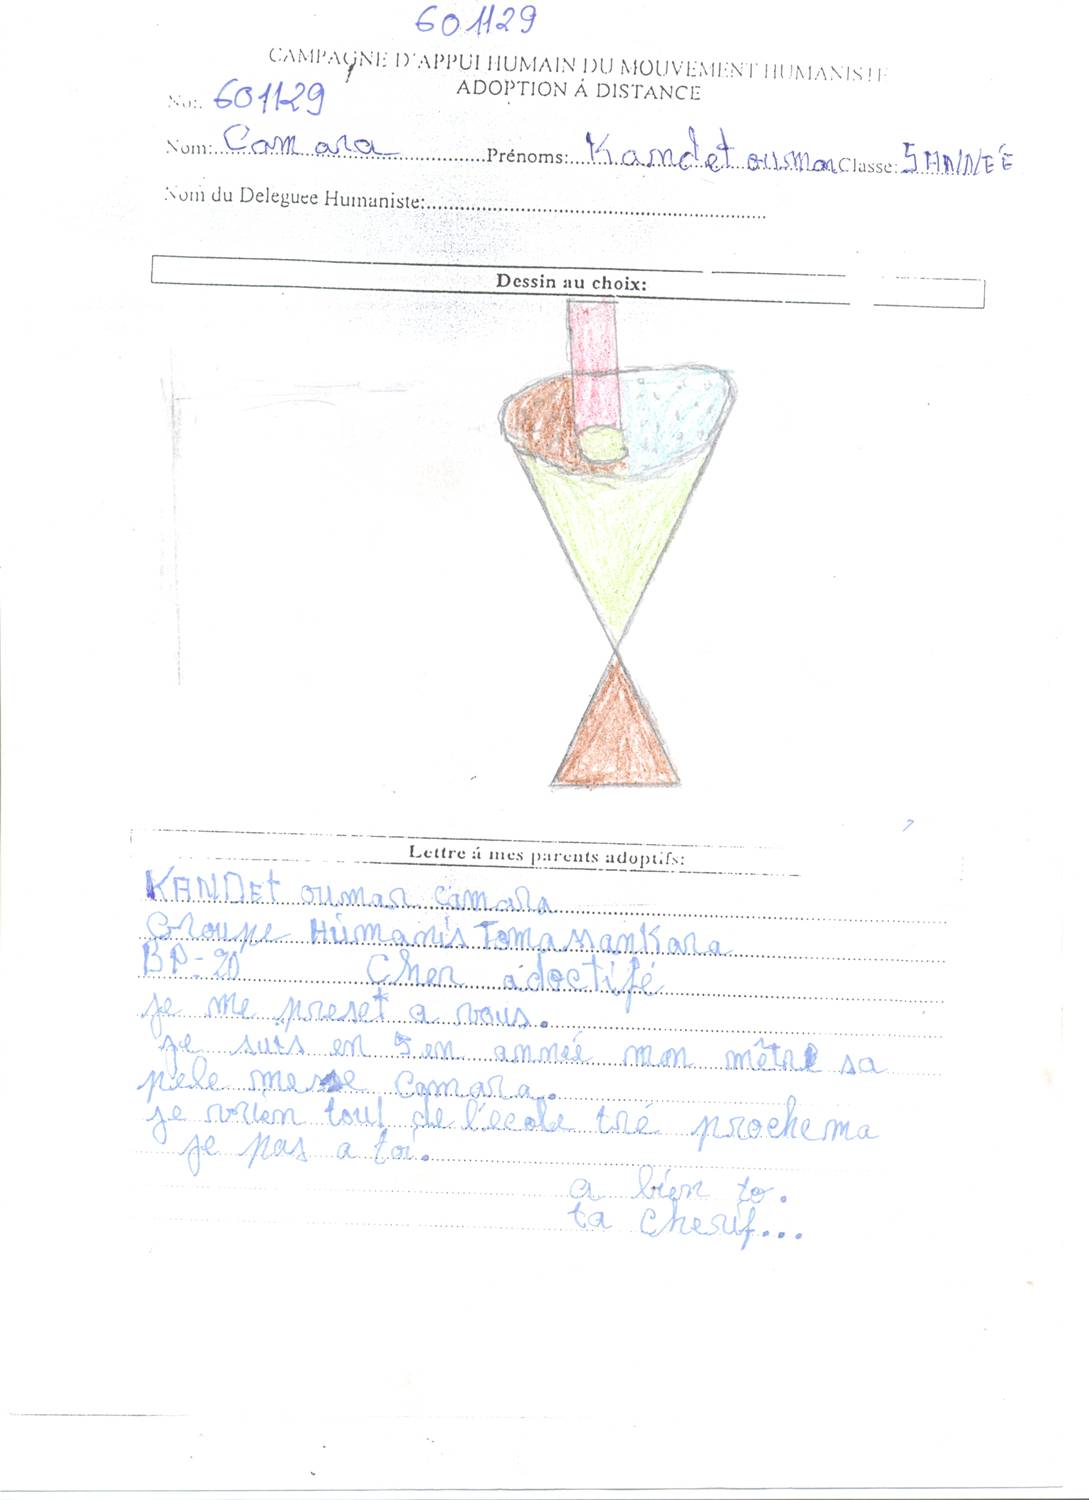 601129
CAMPAGNE D'APPUI HUMAIN DU MOUVEMENT HUMANISTE
ADOPTION Á DISTANCE
No: 601129
Nom: Camara Prénoms: Kandet oumar Classe: 5ANNÉE
Nom du Deleguee Humaniste:
Dessin au choix:
Lettre á mes parents adoptifs:
KANDEt oumar camara
Groupe HúmanisTomassanKara
BP-20 Cher adoctifé
je me preset a vous.
je suis en 5en anneé mon mêtre sa
pele messe Camara.
je vrien tout de l'ecole tré prochema
je pas a toi.
a bien to.
ta cherif...